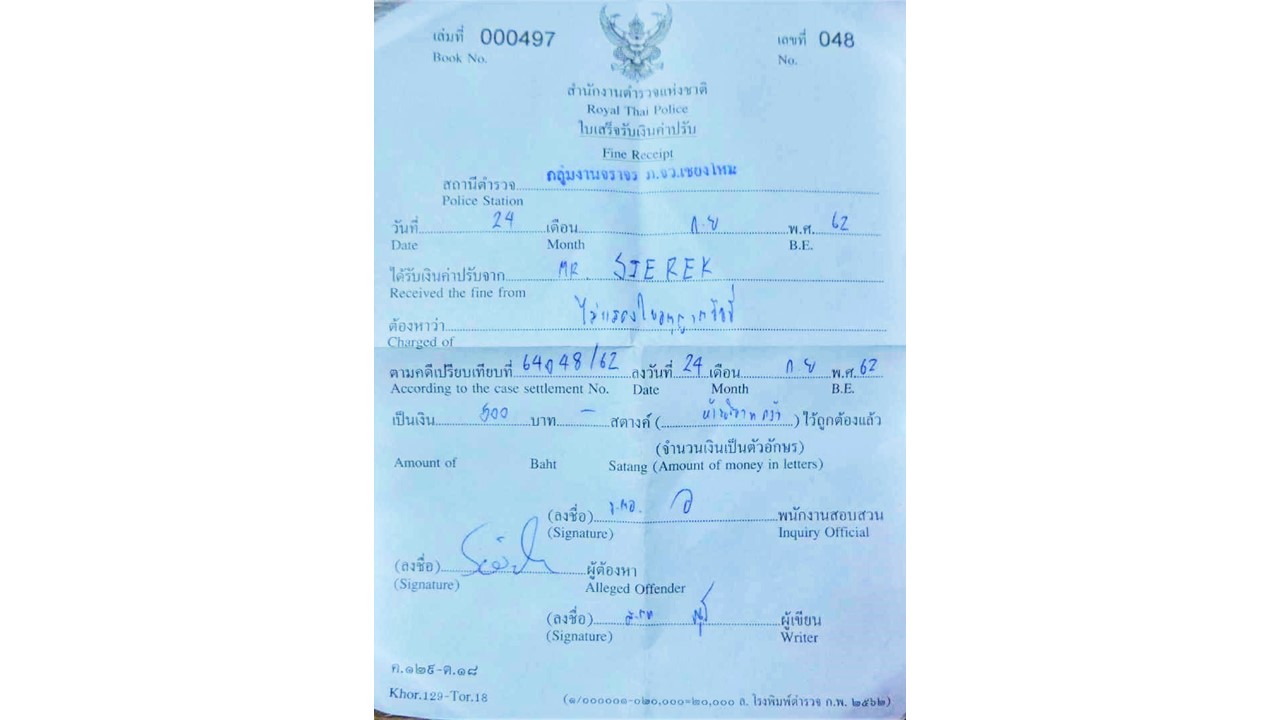 เล่มที่ 000497 เลขที่ 048
Book No. No.
สำนักงานตำรวจแห่งชาติ
Royal Thai Police
ใบเสร็จรับเงินค่าปรับ
Fine Receipt
สถานีตำรวจ กลุ่มงานจราจร ภ.จว.เชียงใหม่
Police Station
วันที่ 24 เดือน ก.ย พ.ศ. 62
Date Month B.E.
ได้รับเงินค่าปรับจาก MR. SIEREK
Received the fine from
ต้องหาว่า ไม่แสดงใบอนุญาตขับขี่
Charged of
ตามคดีเปรียบเทียบที่ ลงวันที่ 24 เดือน ก.ย พ.ศ. 62
According to the case settlement No. Date Month B.E.
เป็นเงิน 500 บาท - สตางค์ (ห้าร้อยบาทถ้วน) ไว้ถูกต้องแล้ว
(จำนวนเงินเป็นตัวอักษร)
Amount of Baht Satang (Amount of money in letters)
(ลงชื่อ) พนักงานสอบสวน
(Signature) Inquiry Official
(ลงชื่อ) ผู้ต้องหา
(Signature) Alleged Offender
(ลงชื่อ) ผู้เขียน
(Signature) Writer
ค.๑๒๙-ต.๑๘
Khor.129-Tor.18 (๑/๐๐๐๐๐๑-๐๒๐,๐๐๐=๒๐,๐๐๐ ล. โรงพิมพ์ตำรวจ ก.พ. ๒๕๖๒)